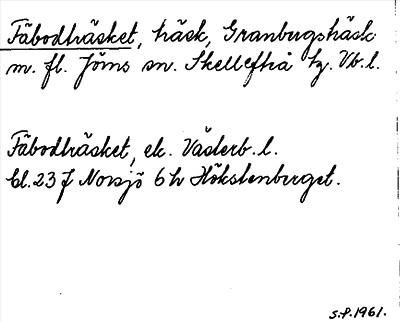 Fäbodträsket, träsk, Granbergsträsk
m. fl. Jörns sn. Skellefteå tg. Vb. l.
Fäbodträsket, ek. Västerb. l.
bl. 23 f Norsjö 6 h Hökstenberget.
S.P. 1961.